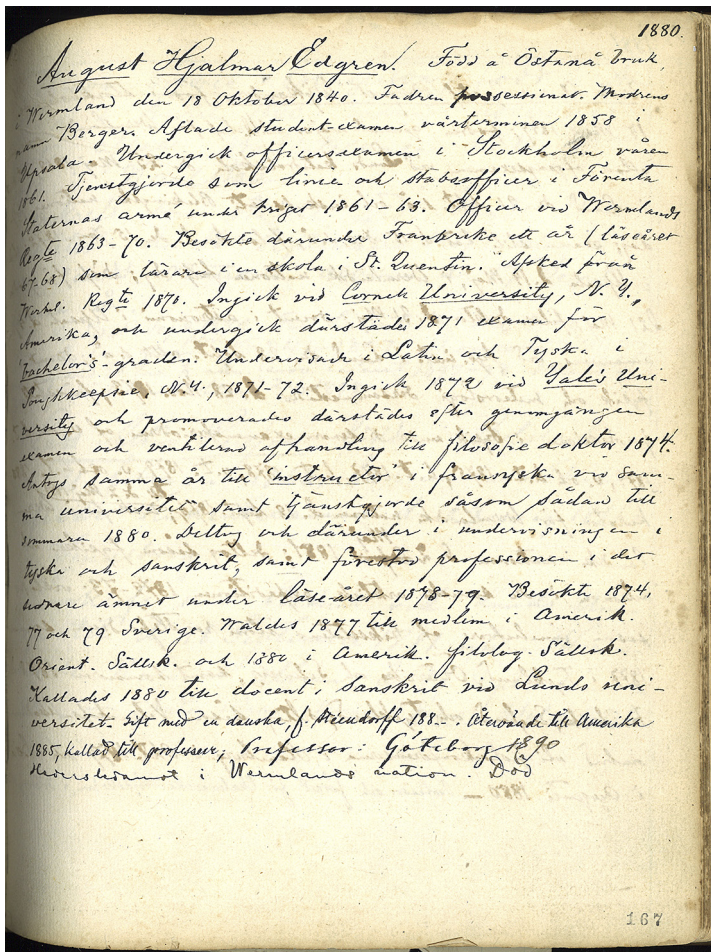 1880.
August Hjalmar Edgren. Född å Östanå bruk,
i Wermland den 18 Oktober 1840. Fadren possessionat. Modrens
namn Berger. Aflade student-examen vårterminen 1858 i
Upsala. Undergick officersexamen i Stockholm våren
1861. Tjenstgjorde som linie- och stabsofficer i Förenta
Staternas armé under kriget 1861-63. Officer vid Wermlands
Regte 1863-70. Besökte därunder Frankrike ett år (läseåret
67-68) som lärare i en skola i St. Quentin. Afsked från
Regte 1870. Ingick vid Cornell University, N. Y.,
Amerika, och undergick därstädes 1871 examen för
bachelor's-graden. Undervisade i Latin och Tyska i
N.Y., 1871-72. Ingick 1872 vid Yale's Uni-
versity och promoverades därstädes efter genomgången
examen och ventilerad afhandling till filosofie doktor 1874.
Antogs samma år till 'instructor' i fransyska vid sam-
ma universitet samt tjänstgjorde såsom sådan till
sommaren 1880. Deltog och därunder i undervisningen i
tyska och sanskrit, samt förestod professionen i det
senare ämnet under läseåret 1878-79. Besökte 1874,
77 och 79 Sverige. Waldes 1877 till medlem i Amerik.
Orient. Sällsk. och 1880 i Amerik. filolog. Sällsk.
Kallades 1880 till docent i sanskrit vid Lunds uni-
versitet. Gift med en danska, f. Steendorff 188-. Återvände till Amerika
1885, kallad till professor; Professor i Göteborg 1890
Hedersledamot i Wermlands nation. Död
167